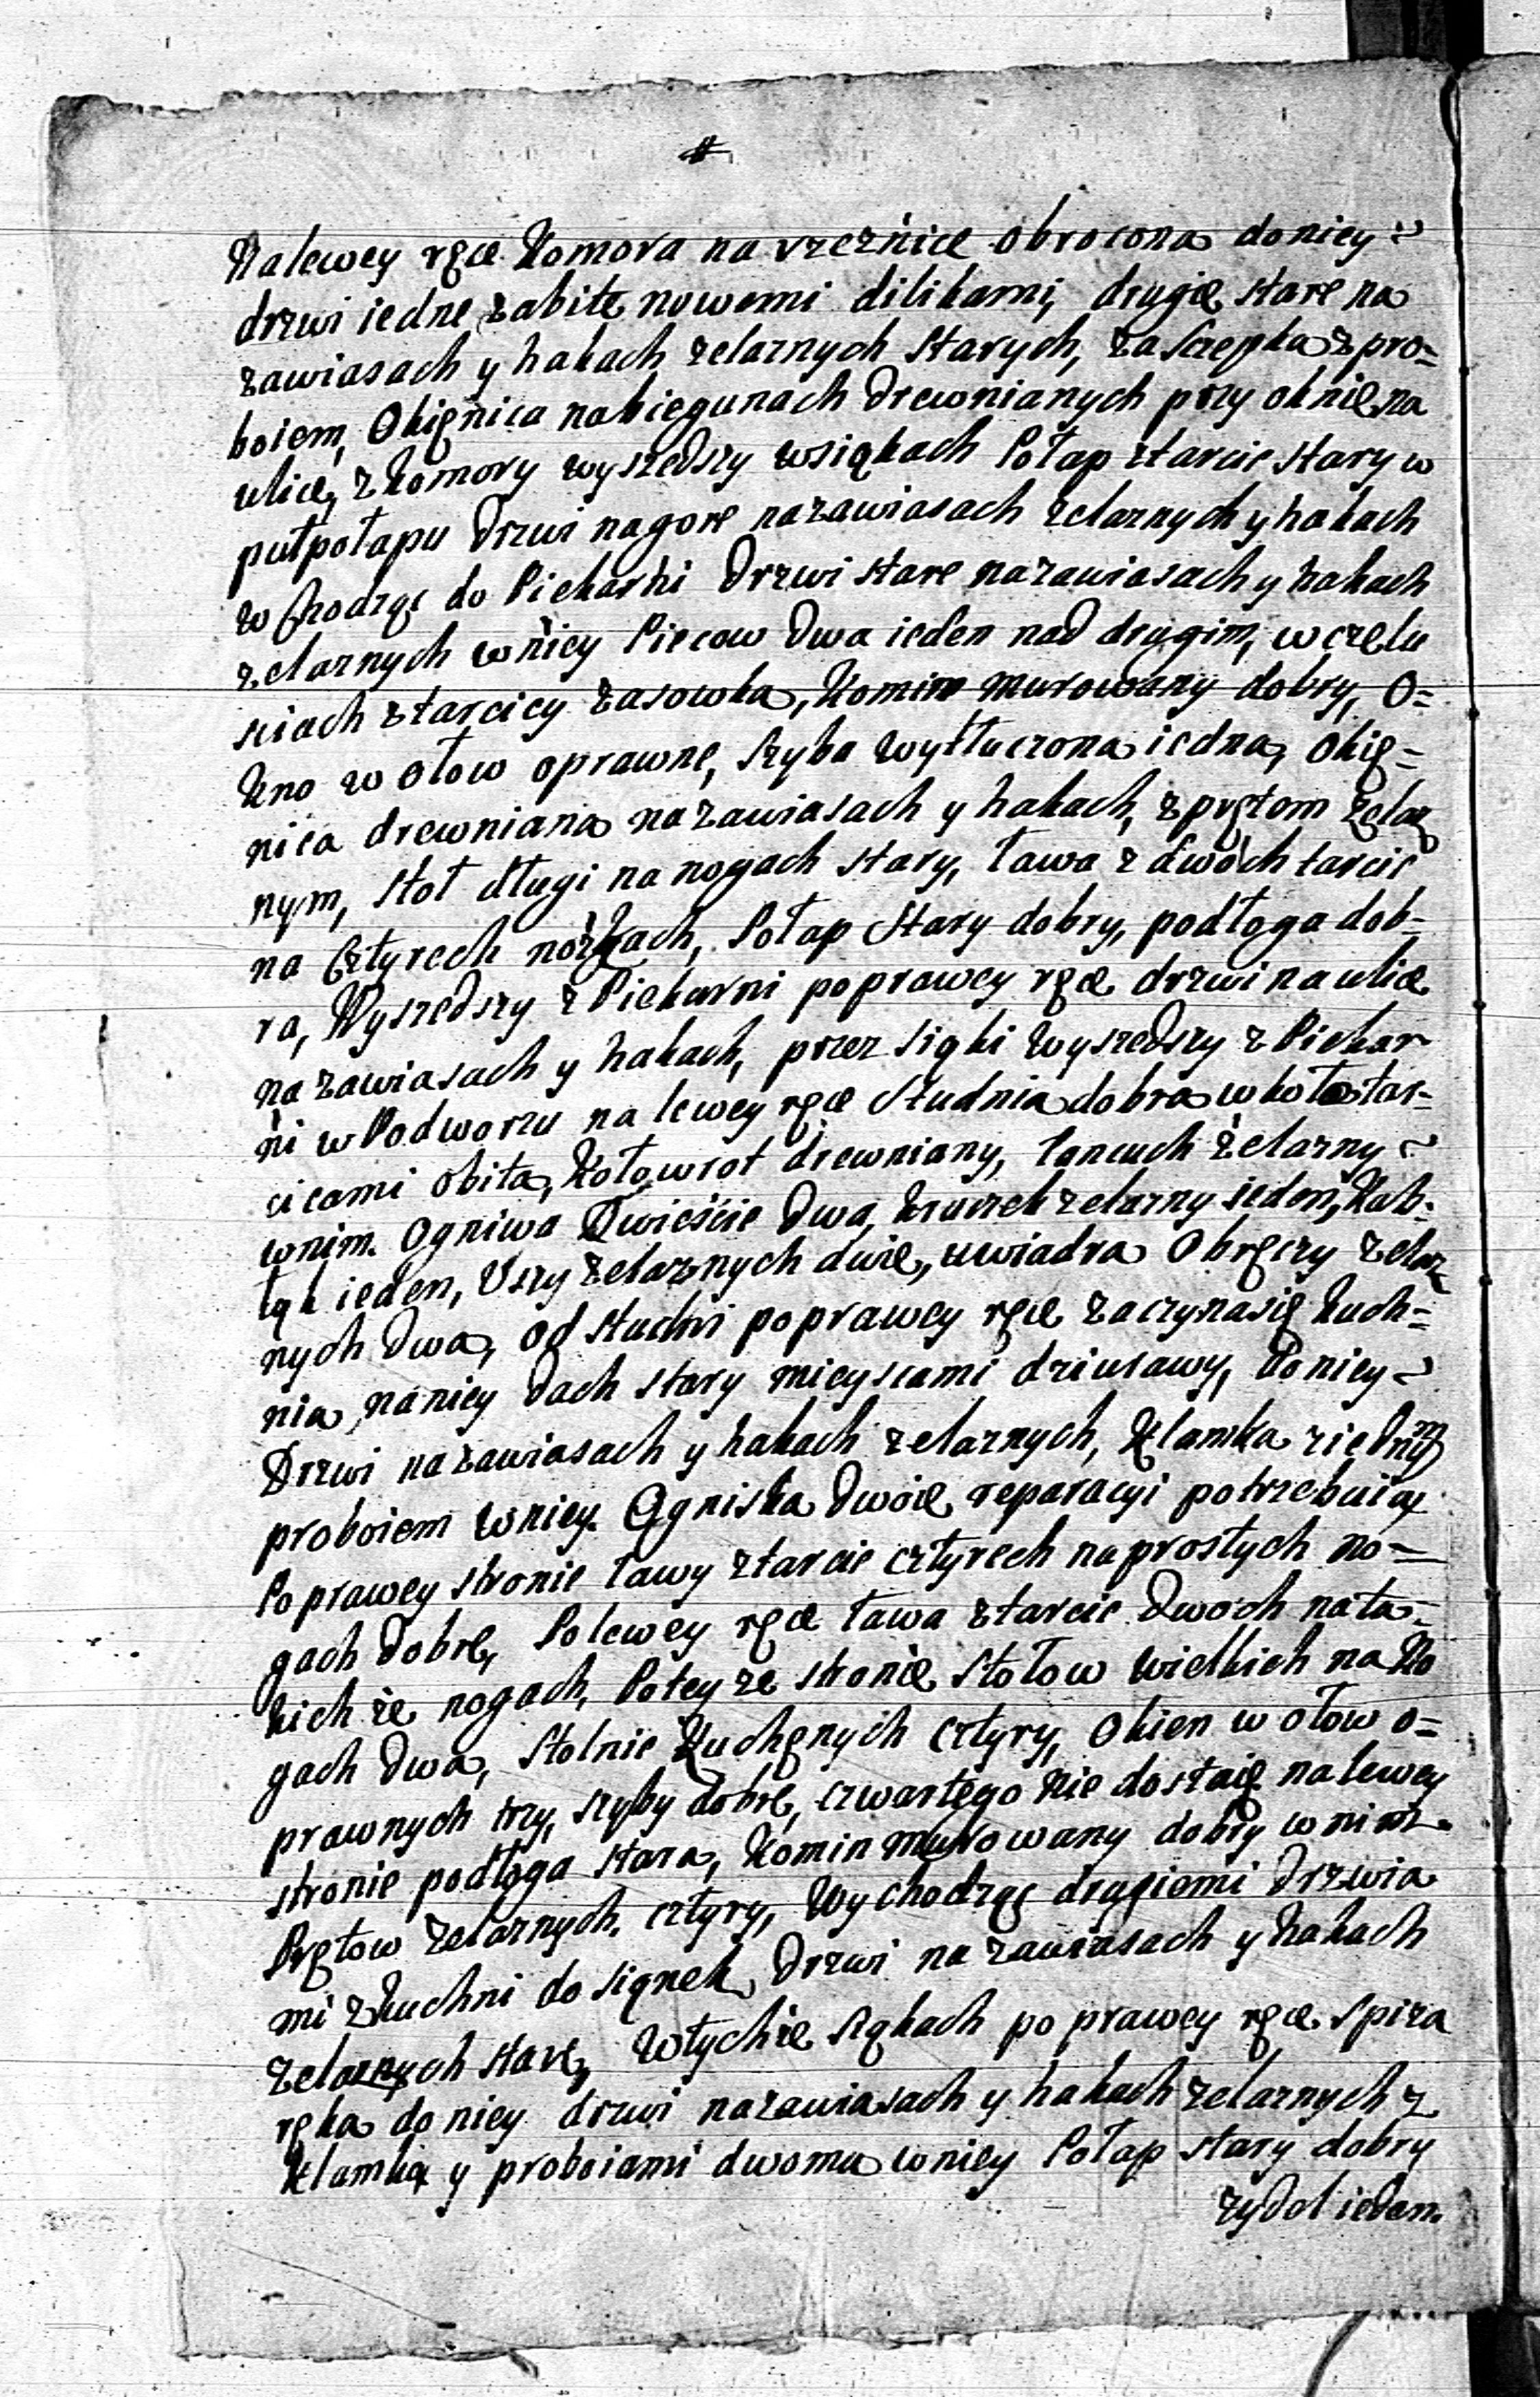 Nalewey ręce Komora na rzeźnice obrocona do niey
drzwi iedne zabite nowemi dilikami, drugie stare na
zawiasach y hakach zelaznych starych, zasczepka z pro=
boiem, Okięnica na biegunach drewnianych przy oknie na
ulicę, z komory wyszedszy w siąkach Połap z tarcic stary w
putpołapu drzwi na gorę na zawiasach zelaznych y hakach
w chodząc do Piekarni drzwi stare na zawiasach y hakach
zelaznych w niey Piecow dwa ieden nad drugim, w czelu
sciach z tarcicy zasowka, Komin murowany dobry, O=
kno w ołow oprawne, szyba wytłuczona iedna, Okię=
nica drewniana na zawiasach y hakach, z prętem żelaz
nym, stoł długi na nogach stary, ława z dwóch tarcic
na cztyrech nóżkach, Połap stary dobry, podłoga dob=
ra, Wyszedszy z Piekarni po prawey ręce drzwi na ulicę
na zawiasach y hakach, przez siąki wyszedszy z Piekar
ni w Podworzu na lewey ręce studnia dobra w koło tar=
cicami obita, Kołowrot drewniany, łancuch żelazny
w nim. Ogniwa dwieście dwa, kruczek zelazny ieden, Kab=
łąk ieden, Uszy zelaznych dwie, u wiadra Obręczy zelaz
nych dwa, od studni po prawey ręce zaczyna się kuch=
nia, na niey dach stary mieyscami dziurawy, do niey
Drzwi na zawiasach y hakach zelaznych, Klamka z iednym
proboiem w niey. Ogniska dwoie reparacyi potrzebuiąć
Po prawey stronie ławy z tarcic cztyrech na prostych no=
gach dobre, Po lewey ręce ława z tarcic dwoch na ta=
kich że nogach, Po tey ze stronie stołow wielkich na No
gach dwa, stolnic Kuchęnych cztyry, Okien w ołow o=
prawnych trzy, szyby dobre, czwartego nie dostaię na lewey
stronie podłoga stara, Komin murowany dobry w nim
Prętow zelaznych. cztyry, Wychodząc drugiemi drzwia
mi z kuchni do siąnek drzwi na zawiasach y hakach
zelaznych stare, W tychże siąkach po prawey ręce spiża
ręka do niey drzwi na zawiasach y hakach zelaznych z
Klamką y proboiami dwoma w niey Połap stary dobry
zydel ieden.